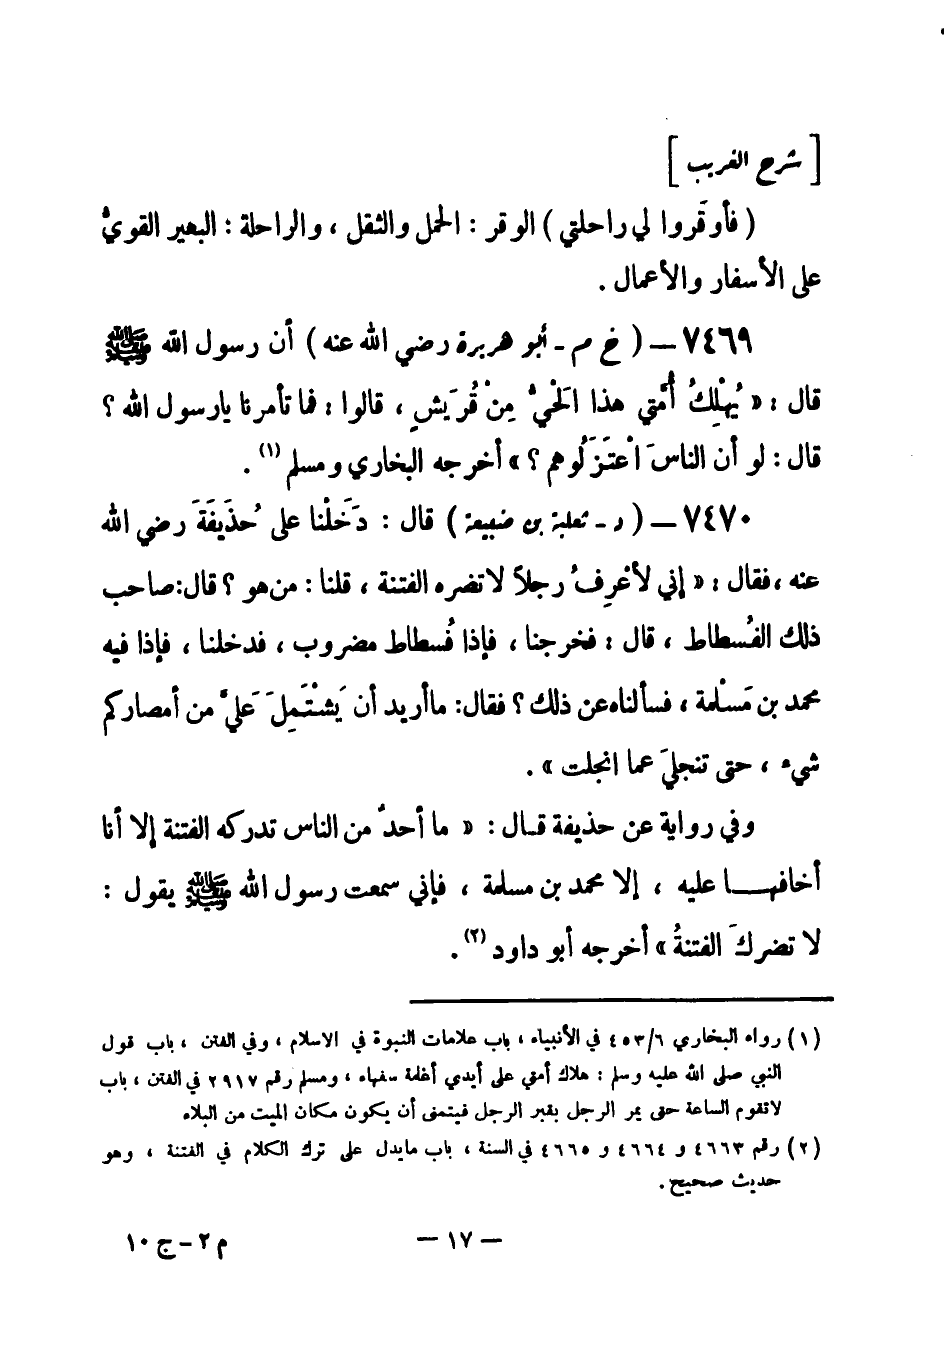 [ شرح الغريب ]
( فأوقَروا لي راحلتي ) الوقر : الحمل والثقل ، والراحلة : البعير القويُّ
على الأسفار والأعمال .
٧٤٦٩ – ( خ م - أبو هريرة رضي الله عنه ) أن رسول الله ﷺ
قال : « يُهْلِكُ أُمَّتي هذا الحَيُّ مِنْ قُرَيشٍ ، قالوا : فما تأمرنا يارسول الله ؟
قال : لو أن الناسَ اعْتَزَلُوهم ؟ » أخرجه البخاري ومسلم (١) .
٧٤٧٠ – ( د - ثعلبة بن ضبيعة ) قال : دَخَلْنا على حُذَيفَةَ رضي الله
عنه ، فقال : « إني لأعْرِفُ رجلاً لاتضره الفتنة ، قلنا : من هو ؟ قال: صاحب
ذلك الفُسطاط ، قال : فخرجنا ، فإذا فُسطاط مضروب ، فدخلنا ، فإذا فيه
محمد بن مَسْلمة ، فسألناه عن ذلك ؟ فقال: ماأريد أن يَشْتَمِلَ عَليَّ من أمصاركم
شيء ، حتى تنجليَ عما انجلت » .
وفي رواية عن حذيفة قـال : « ما أحدٌ من الناس تدركه الفتنة إلا أنا
أخافهـــا عليه ، إلا محمد بن مسلمة ، فإني سمعت رسول الله ﷺ يقول :
لا تضركَ الفتنةُ » أخرجه أبو داود (٢) .
(١) رواه البخاري ٤٥٣/٦ في الأنبياء ، باب علامات النبوة في الاسلام ، وفي الفتن ، باب قول
النبي صلى الله عليه وسلم : هلاك أمتي على أيدي أغلمة سفهاء ، ومسلم رقم ٢٩١٧ في الفتن ، باب
لاتقوم الساعة حتى يمر الرجل بقبر الرجل فيتمنى أن يكون مكان الميت من البلاء
(٢) رقم ٤٦٦٣ و ٤٦٦٤ و ٤٦٦٥ في السنة ، باب مايدل على ترك الكلام في الفتنة ، وهو
حديث صحيح .
– ١٧ –
م ٢ – ج ١٠